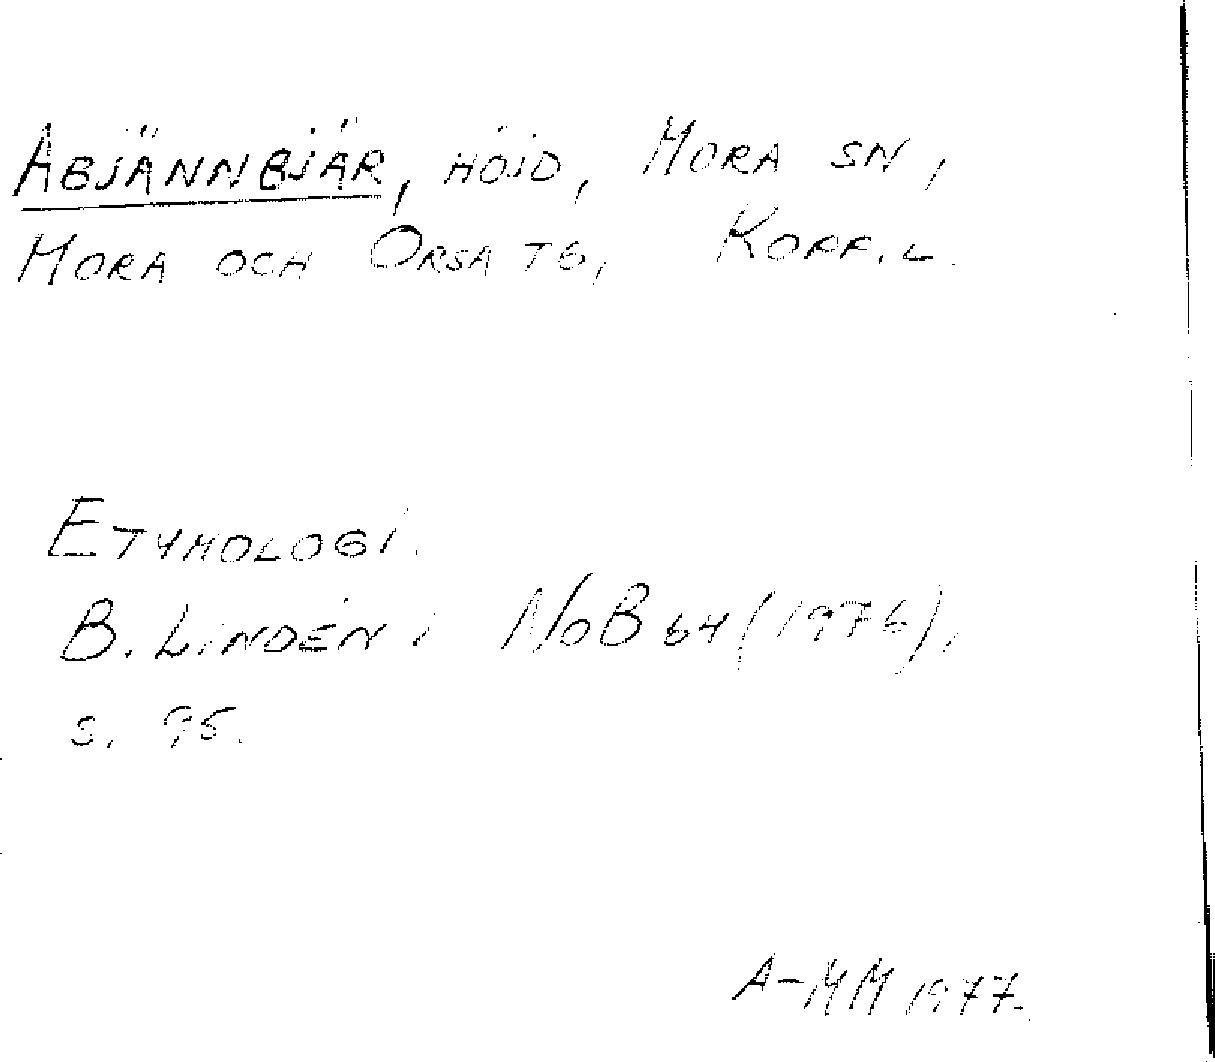 ABJÄNNBJÄR, HÖJD, MORA SN,
MORA OCH ORSA TG, KOPP.L.
ETYMOLOGI.
B. LINDÉN i NoB 64 (1976),
s. 95.
A-MM 1977.